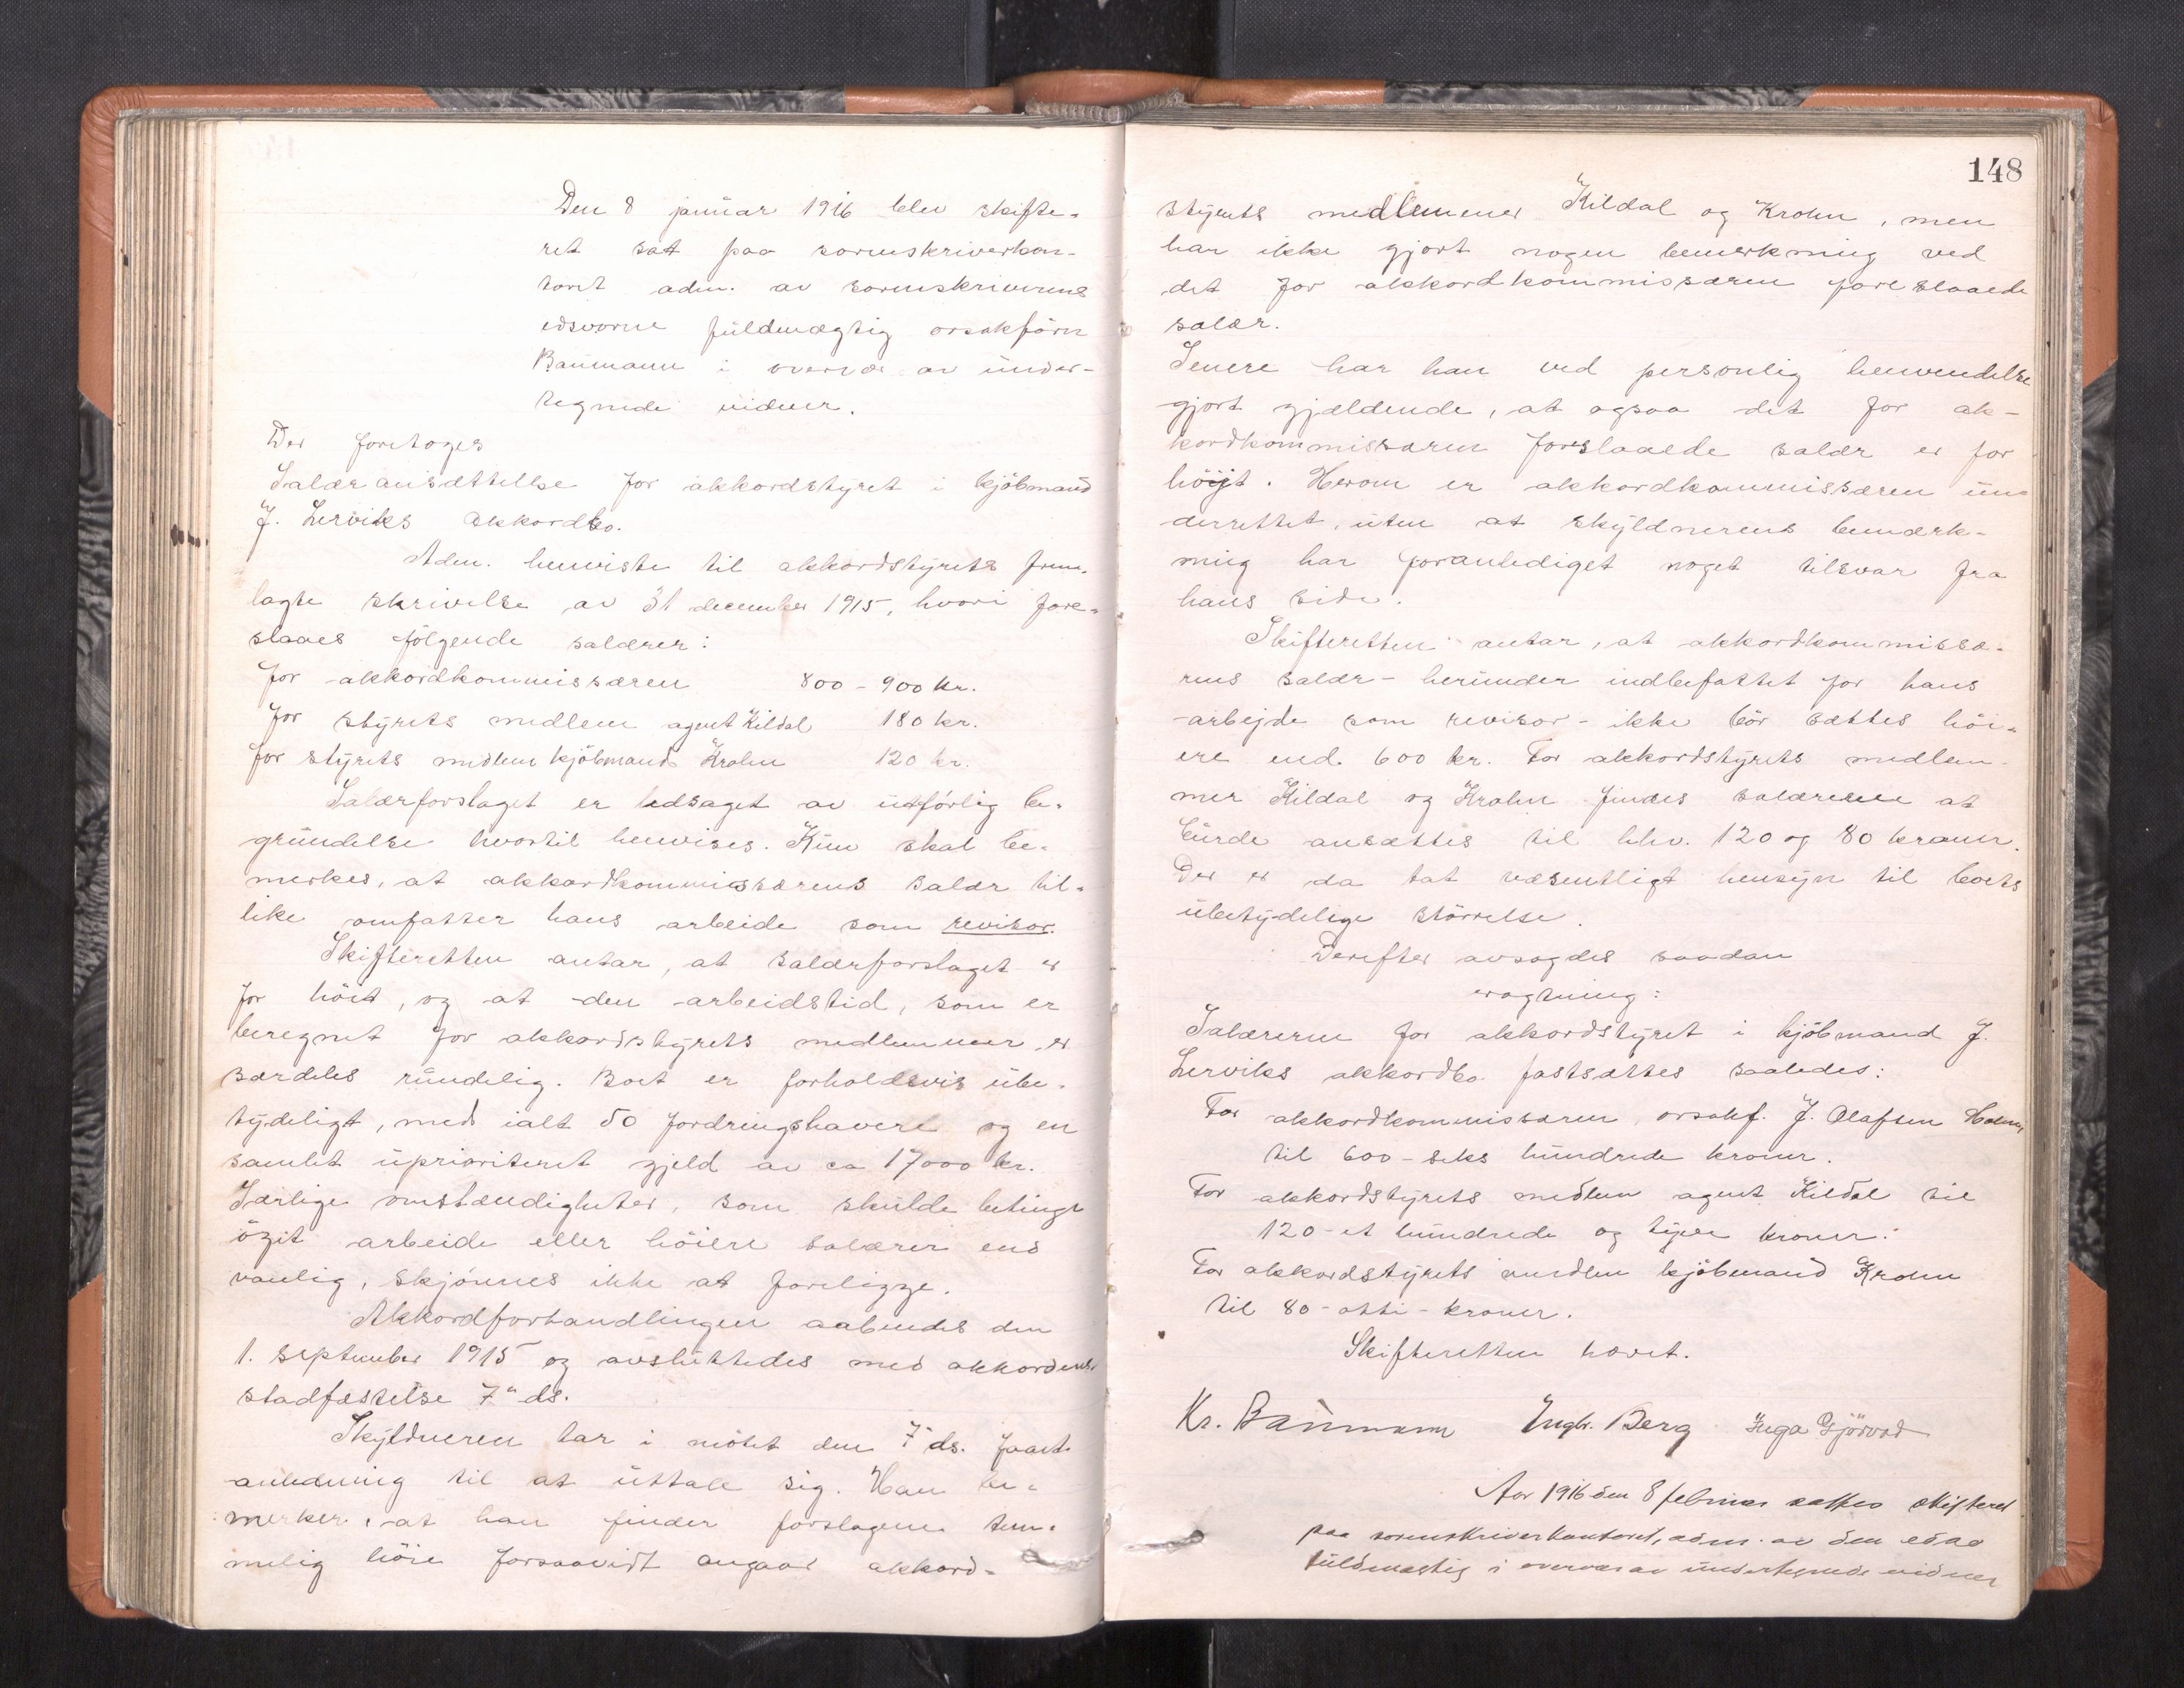 Den 8 januar 1916 blev skifte-
ret sat paa sorenskriverkon-
toret adm. av sorenskriverens
edsvorne fuldmægtig orsakförn
Baumann i overvær av under-
tegnede vidner.
Der foretoges
Salær ansættelse for akkordstyret i kjöbmand
J. Lerviks akkordbo.
Adm. henviste til akkordstyrets frem-
lagte skrivelse av 31 december 1915, hvori fore-
slaaes fölgende salærer:
for akkordkommissæren 800 - 900 kr.
for styrets medlem agent Kildal 180 kr.
for styrets medlem kjöbmand Krohn 120 kr.
Salærforslaget er ledsaget av utförlig be-
grundelse hvortil henvises. Kun skal be-
merkes, at akkordkommissærens salær til-
like omfatter hans arbeide som revisor.
Skifteretten antar, at salærforslaget er
for höit, og at den arbeidstid, som er
beregnet for akkordstyrets medlemmer, er
særdeles rundelig. Boet er forholdsvis ube-
tydeligt, med ialt 50 fordringshavere og en
samlet uprioriteret gjeld av ca 17000 kr.
Særlige omstændigheter, som skulde betinge
öget arbeide eller höiere salærer end
vanlig, skjönnes ikke at foreligge.
Akkordforhandlingen aabnedes den
1. september 1915 og avsluttedes med akkordens
stadfæstelse 7" ds.
Skyldneren har i mötet den 7" ds. faaet
anledning til at uttale sig. Han be-
merker, at han finder forslagene tem-
melig höie forsaavidt angaar akkord-
148
styrets medlemmer Kildal og Krohn, men
har ikke gjort nogen bemerkning ved
det for akkordkommissæren foreslaaede
salær.
Senere har han ved personlig henvendelse
gjort gjældende, at ogsaa det for ak-
kordkommissæren foreslaaede salær er for
höit. Herom er akkordkommissæren un-
derrettet, uten at skyldnerens bemærk-
ning har foranlediget noget tilsvar fra
hans side.
Skifteretten antar, at akkordkommissæ-
rens salær - herunder indbefattet for hans
arbejde som revisor - ikke bör sættes höi-
ere end 600 kr. For akkordstyrets medlem-
mer Kildal og Krohn findes salærerne at
burde ansættes til hhv. 120 og 80 kroner.
Der er da tat væsentligt hensyn til boets
ubetydelige störrelse.
Derefter avsagdes saadan
eragtning:
Salærerne for akkordstyret i kjöbmand J.
Lerviks akkordbo fastsættes saaledes:
For akkordkommissæren, orsakf. J. Olafsen Holm
til 600 - seks hundrede kroner.
For akkordstyrets medlem agent Kildal til
120 - et hundrede og tyve kroner.
For akkordstyrets medlem kjöbmand Krohn
til 80 - otti - kroner.
Skifteretten hævet.
Kr. Baumann Engbr. Berg Inga Gjörvad
Aar 1916 den 8 februar sattes skifteret
paa sorenskriverkontoret, adm. av den edsv
fuldmægtig i overvær av undertegnede vidner